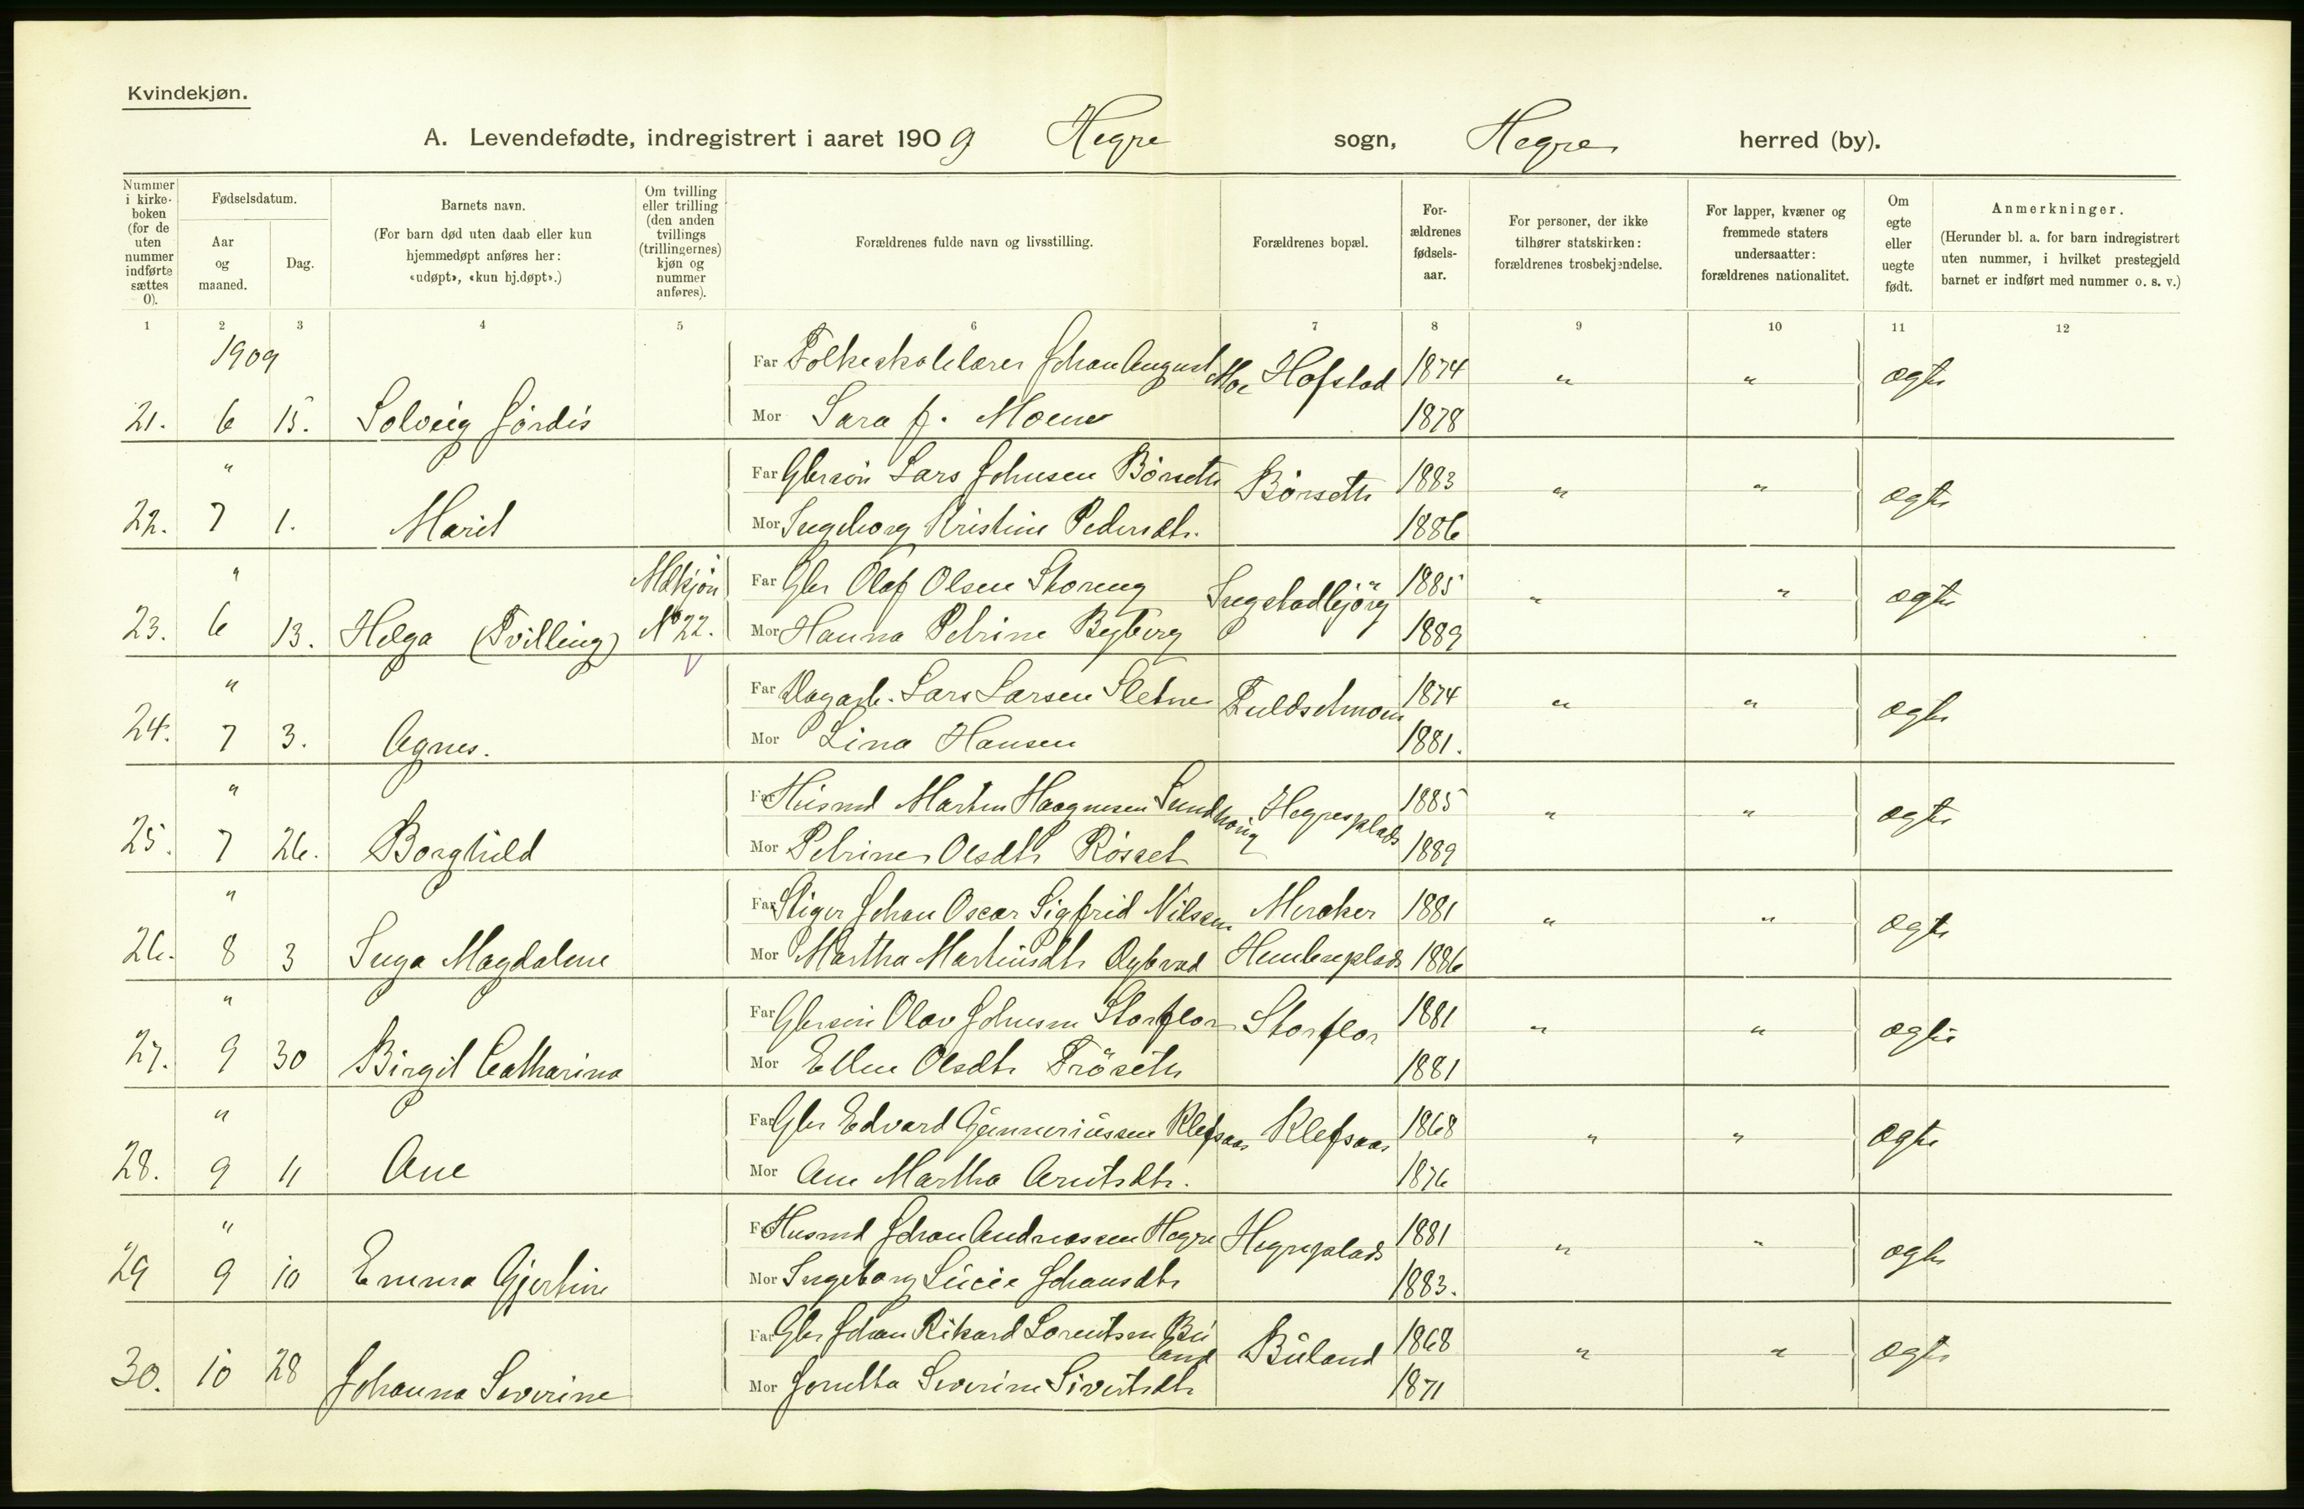 Kvindekjøn.
A. Levendefødte, indregistrert i aaret 1909 Hegre sogn, Hegre herred (by).
Nummer i kirke-boken (for de uten nummer indførte sættes 0).
Fødselsdatum.
Aar og maaned.
Dag.
Barnets navn.
(For barn død uten daab eller kun hjemmedøpt anføres her: «udøpt», «kun hj.døpt».)
Om tvilling eller trilling (den anden tvillings (trillingernes) kjøn og nummer anføres).
Forældrenes fulde navn og livsstilling.
Forældrenes bopæl.
For-ældrenes fødsels-aar.
For personer, der ikke tilhører statskirken: forældrenes trosbekjendelse.
For lapper, kvæner og fremmede staters undersaatter: forældrenes nationalitet.
Om egte eller uegte født.
Anmerkninger.
(Herunder bl. a. for barn indregistrert uten nummer, i hvilket prestegjeld barnet er indført med nummer o. s. v.)
1 2 3 4 5 6 7 8 9 10 11 12
1909 Far Folkeskolelærer Johan August Moe Hofstad 1874 " " ægte
21. 6 15. Solveig Jórdis Mor Sara f. Moen 1878
" Far Gbrsön Lars Johnsen Börseth Börseth 1883 " " ægte
22. 7 1. Marit Mor Ingeborg Kristine Pedersdtr. 1886
" Mdkjön Far Gbr Olaf Olsen Storeng Ingstadbjörg 1885 " " ægte
23. 6 13. Helga (Tvilling) No 22. Mor Hanna Petrine Byberg 1889
" Far Dagarb. Lars Larsen Sletne Fuldsetmoen 1874 " " ægte
24. 7 3. Agnes. Mor Lina Hansen 1881.
" Far Husmd Martin Haagensen Sundhoug Hegreplads 1885 " " ægte
25. 7 26. Borghild Mor Petrine Olsdtr Rösset 1889
" Far Stiger Johan Oscar Sigfrid Nilssen Meraker 1881 " " ægte
26. 8 3 Inga Magdalene Mor Martha Martinsdtr Hembreplads 1886
" Far Gbrsön Olav Johnsen Storflor Storflor 1881 " " ægte
27. 9 30 Birgit Catharina Mor Ellen Olsdtr Tröseth 1881
" Far Gbr Edvard Gunneriussen Klefsaas Klefsaas 1868 " " ægte
28. 9 11 Ane Mor Ane Martha Arntsdtr. 1876
" Far Husmd Johan Andreassen Hegre Hegreplads 1881 " " ægte
29 9 10 Emma Gjertine Mor Ingeborg Lucie Johansdtr 1883.
Far Gbr Johan Rikard Lorentsen Buland Buland 1868 " " ægte
30. 10 28 Johanna Severine Mor Jonetta Severine Sivertsdtr 1871